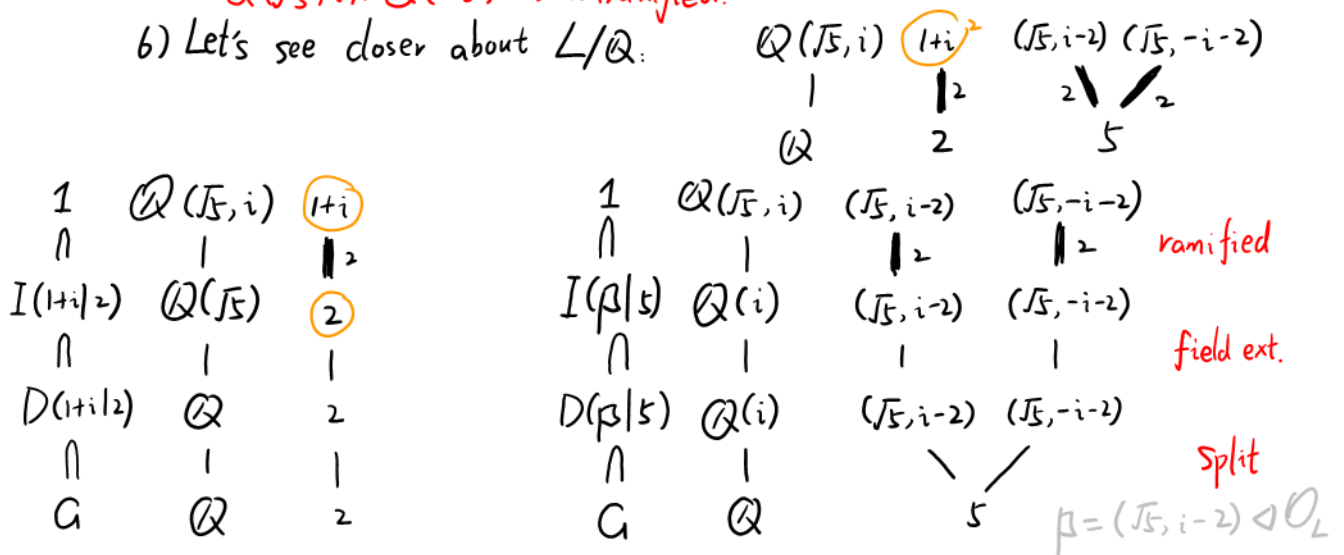 6) Let's see closer about L/Q:
Q(√5,i) (1+i)² (√5,i-2) (√5,-i-2)
2 2 2
Q 2 5
1 Q(√5,i) 1+i
2
I(1+i|2) Q(√5) 2
∩
D(1+i|2) Q 2
∩
G Q 2
1 Q(√5,i) (√5,i-2) (√5,-i-2)
∩ 2 2 ramified
I(β|5) Q(i) (√5,i-2) (√5,-i-2)
∩ field ext.
D(β|5) Q(i) (√5,i-2) (√5,-i-2)
∩ split
G Q 5
β=(√5,i-2)◁O_L